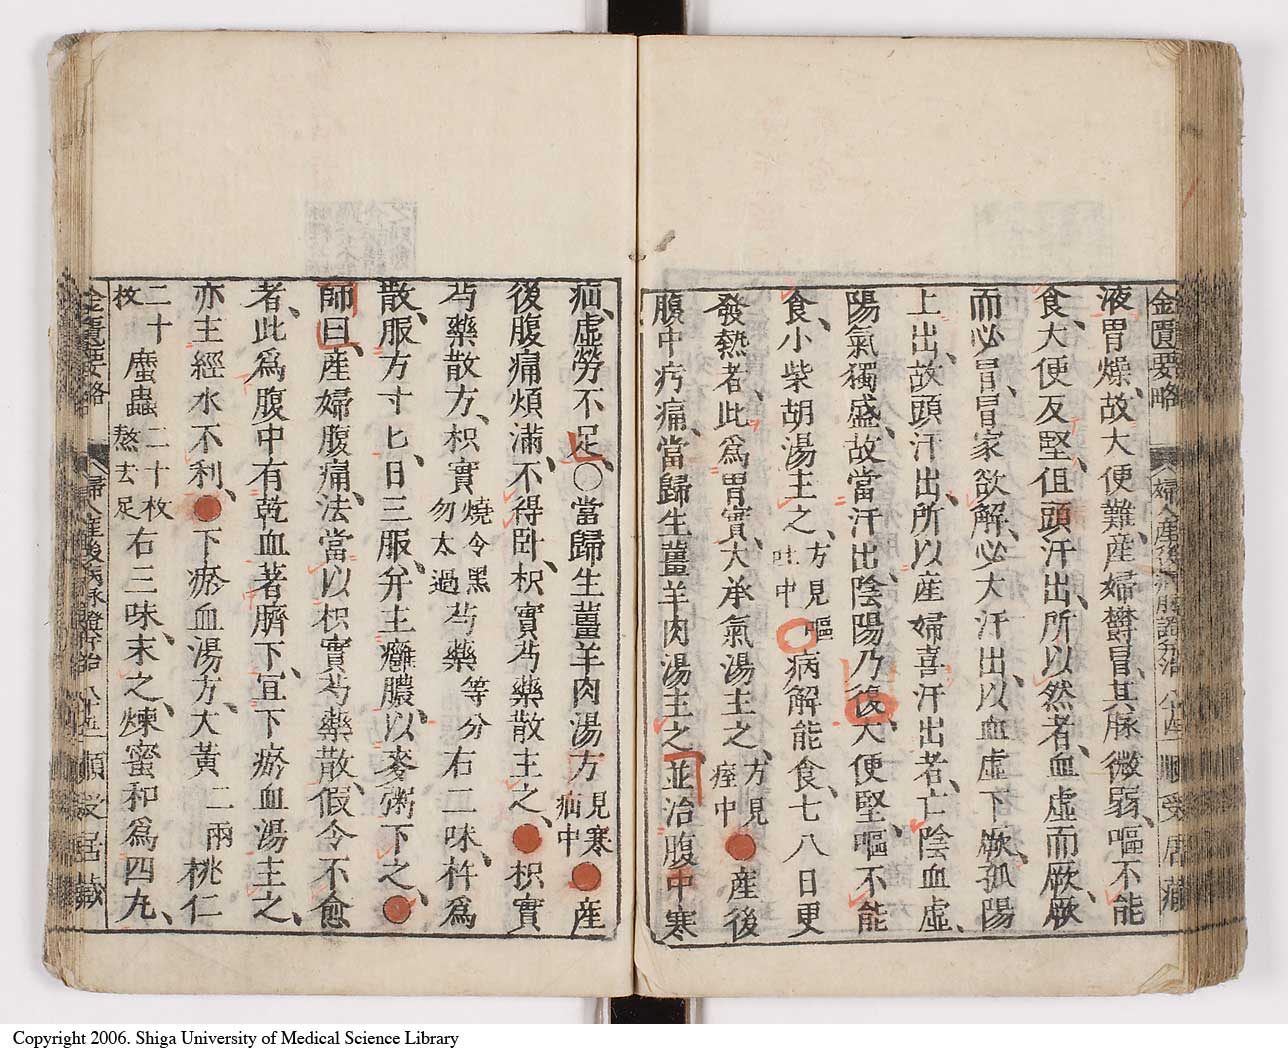 金匱要略 婦人産後病脉證并治 順受居藏
液胃燥、故大便難、産婦欝冒、其脉微弱、嘔不能
食、大便反堅、但頭汗出、所以然者、血虛而厥、厥
而必冒、冒家欲解、必大汗出、以血虛下厥、孤陽
上出、故頭汗出、所以産婦喜汗出者、亡陰血虛、
陽氣獨盛、故當汗出、陰陽乃復、大便堅、嘔不能
食、小柴胡湯主之、方見嘔吐中○病解能食、七八日更
發熱者、此爲胃實、大承氣湯主之、方見痙中●産後
腹中㽲痛、當歸生薑羊肉湯主之、並治腹中寒
疝、虛勞不足、○當歸生薑羊肉湯方見寒疝中●産
後腹痛煩滿、不得臥、枳實芍藥散主之、●枳實
芍藥散方、枳實燒令黑勿太過芍藥等分右二味、杵爲
散、服方寸匕、日三服、并主癰膿、以麥粥下之、●
師曰、産婦腹痛、法當以枳實芍藥散、假令不愈
者、此爲腹中有乾血著臍下、宜下瘀血湯主之、
亦主經水不利、●下瘀血湯方、大黃二兩桃仁
二十枚䗪蟲二十枚熬去足右三味、末之、煉蜜和爲四丸、
金匱要略 婦人産後病脉證并治 順受居藏
Copyright 2006. Shiga University of Medical Science Library